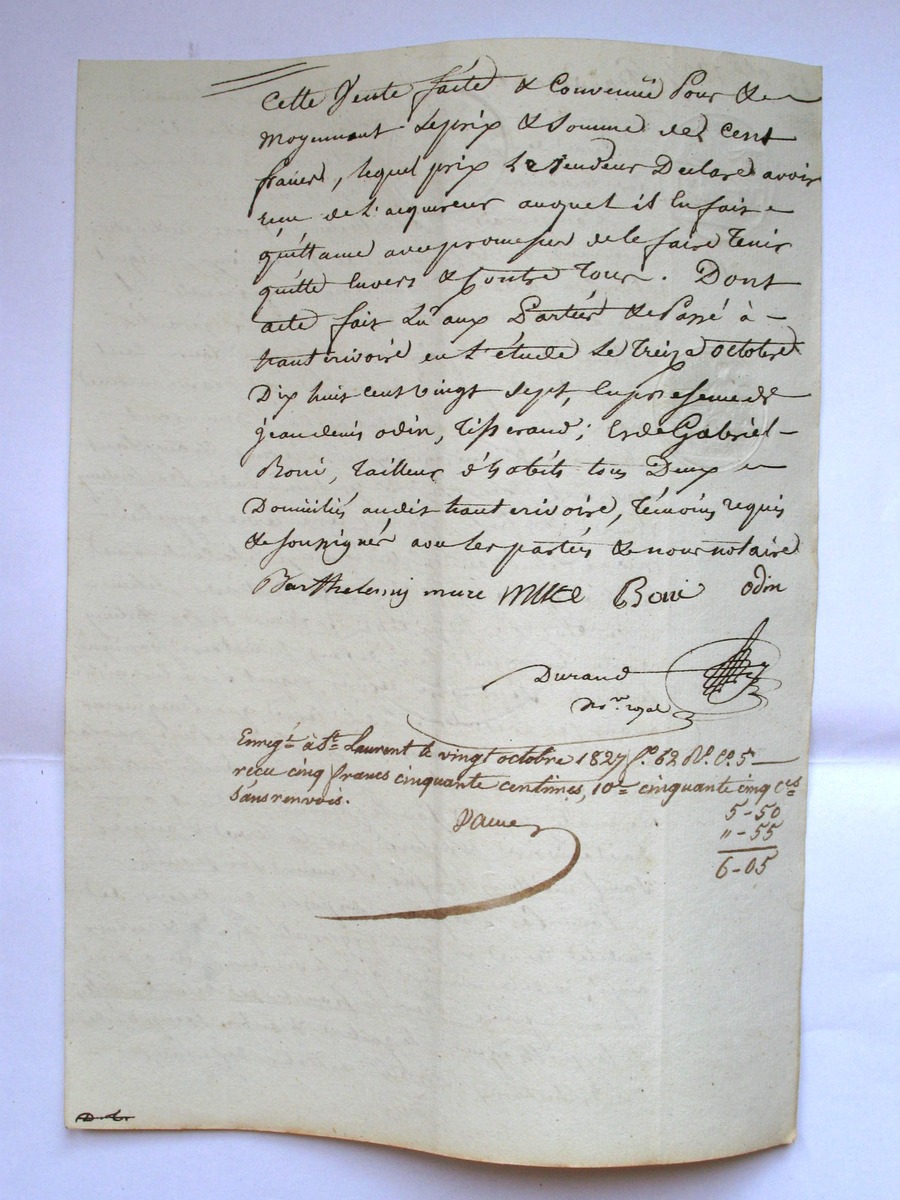 Cette Vente faite & Convenuë Pour &
moyennant Le prix & Somme de cent
francs, lequel prix Le Vendeur Declare avoir
reçu de L'acquereur auquel il En fait
quittance avec promesse de le faire Tenir
quitte Envers & Contre Tous. Dont
acte fait Lu aux Parties & Passé à
hauterivoire en L'étude Le treize octobre
Dix huit cent vingt sept, En presence de
jean denis odin, Tisserand; Et de Gabriel
Boni, Tailleur d'habits tous Deux
Domiciliés audit hauterivoire, Témoins requis
& soussignés avec les parties & nous notaire
Barthelemy mure Boni odin
Durand
No.re royal
Enreg.t à S.t Laurent le vingt octobre 1827 f.o 62 R.o C.e 5
reçu cinq francs cinquante centimes, 10.e cinquante cinq c.es
sans renvois.
5-50
"-55
6-05